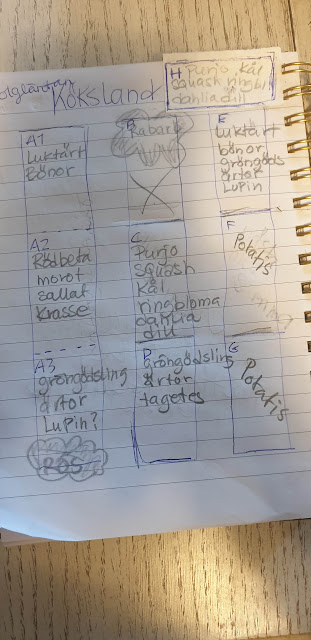 Köksland
H Purjo, Kål
squash ringbl
dahlia dill
A1
Luktärt
Bönor
Rabar
E
Luktärt
bönor
gröngöds
ärtor
Lupin
A2
Rödbeta
morot
sallat
Krasse
C
Purjo
squash
Kål
ringbloma
dahlia
dill
F
Potatis
A3
gröngödsling
ärtor
Lupin?
ROS
D
gröngödsling
ärtor
tagetes
G
Potatis